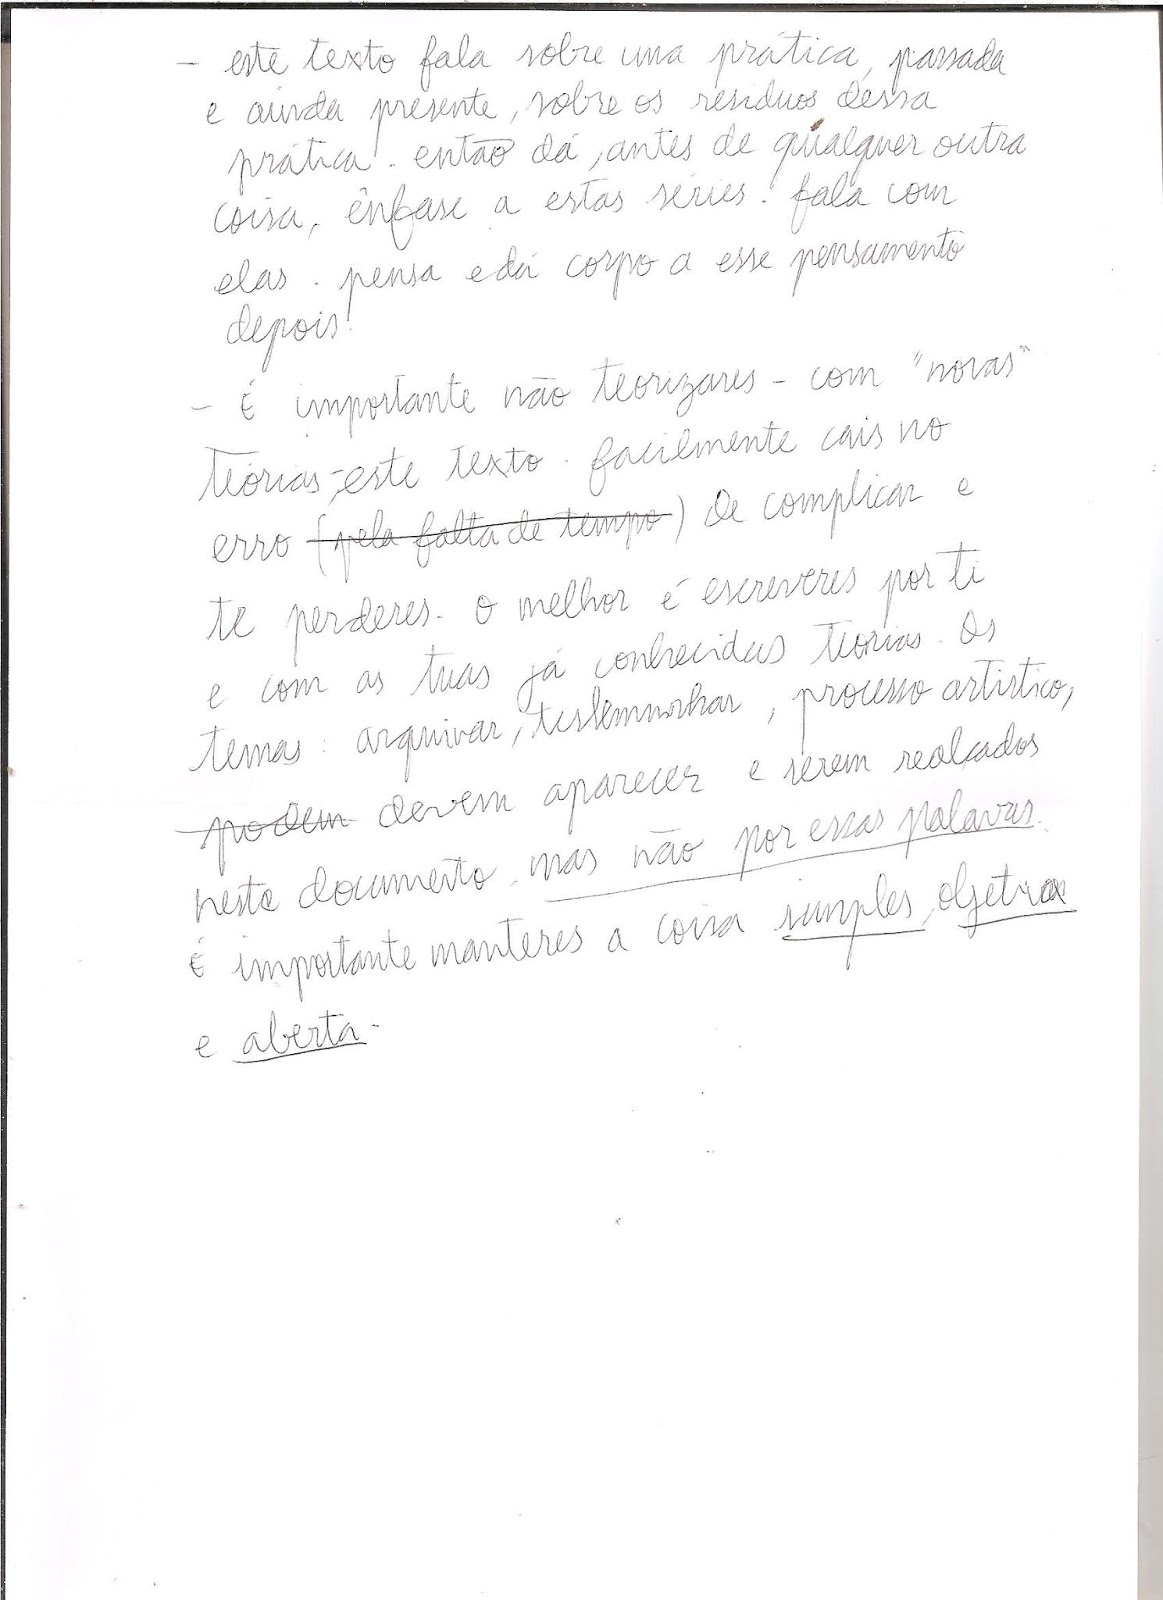 - este texto fala sobre uma prática, passada
e ainda presente, sobre os resíduos dessa
prática. então dá, antes de qualquer outra
coisa, ênfase a estas séries. fala com
elas. pensa e dá corpo a esse pensamento
depois!
- É importante não teorizares - com "novas"
teorias -, este texto. facilmente cais no
erro (pela falta de tempo) de complicar e
te perderes. o melhor é escreveres por ti
e com as tuas já conhecidas teorias. Os
temas: arquivar, testemunhar, processo artístico,
podem devem aparecer e serem realçados
neste documento, mas não por essas palavras.
É importante manteres a coisa simples, objetiva
e aberta-